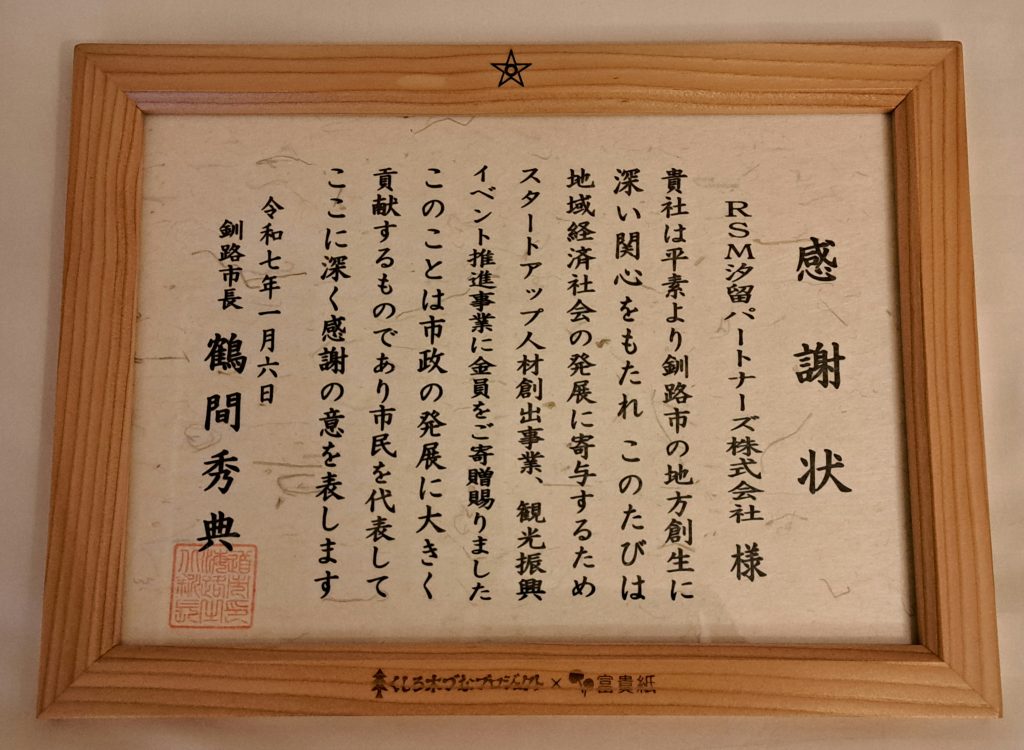 感謝状
RSM汐留パートナーズ株式会社 様
貴社は平素より釧路市の地方創生に
深い関心をもたれ このたびは
地域経済社会の発展に寄与するため
スタートアップ人材創出事業、観光振興
イベント推進事業に金員をご寄贈賜りました
このことは市政の発展に大きく
貢献するものであり市民を代表して
ここに深く感謝の意を表します
令和七年一月六日
釧路市長 鶴間秀典
くしろ木づなプロジェクト×富貴紙